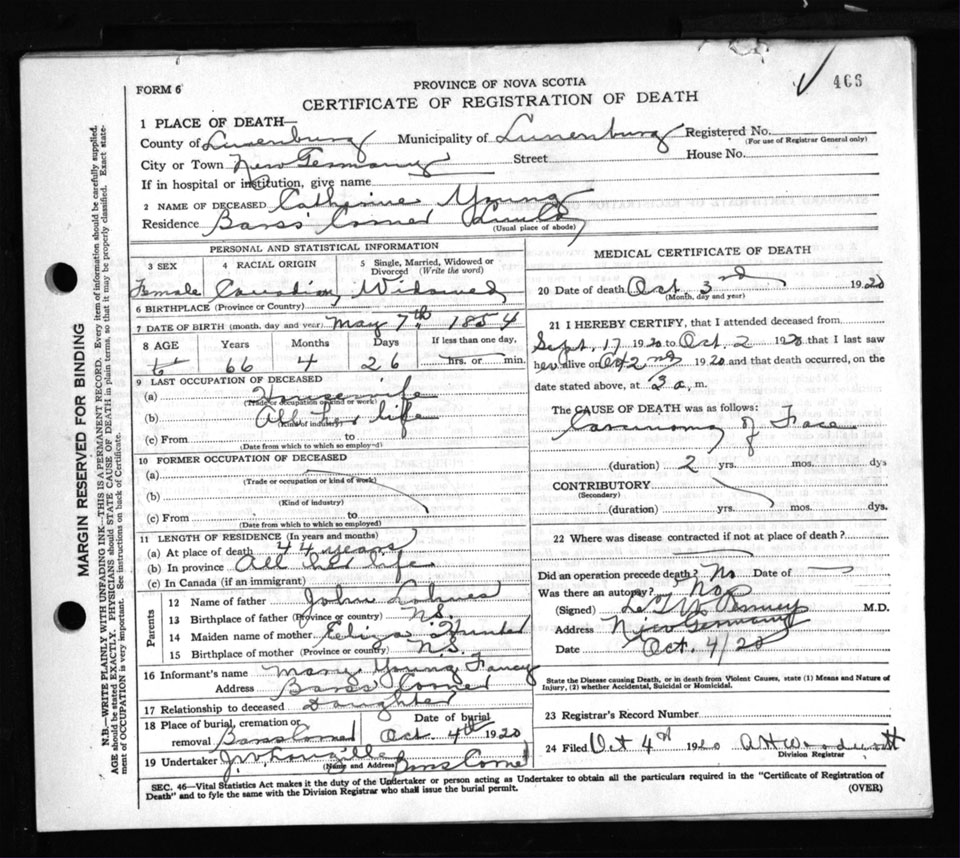 466
FORM 6
PROVINCE OF NOVA SCOTIA
CERTIFICATE OF REGISTRATION OF DEATH
1 PLACE OF DEATH—
County of Lunenburg Municipality of Lunenburg Registered No.
(For use of Registrar General only)
City or Town New Germany Street House No.
If in hospital or institution, give name
2 NAME OF DECEASED Catherine Young
Residence Barss Corner
(Usual place of abode)
PERSONAL AND STATISTICAL INFORMATION
3 SEX 4 RACIAL ORIGIN 5 Single, Married, Widowed or Divorced (Write the word)
Female Canadian Widowed
6 BIRTHPLACE (Province or Country)
7 DATE OF BIRTH (month, day and year) May 7th 1854
8 AGE Years Months Days If less than one day,
66 4 26 hrs. or min.
9 LAST OCCUPATION OF DECEASED
(a) Housewife
(Trade or occupation or kind of work)
(b) All her life
(Kind of industry)
(c) From to
(Date from which to which so employed)
10 FORMER OCCUPATION OF DECEASED
(a)
(Trade or occupation or kind of work)
(b)
(Kind of industry)
(c) From to
(Date from which to which so employed)
11 LENGTH OF RESIDENCE (In years and months)
(a) At place of death 44 years
(b) In province All her life
(c) In Canada (if an immigrant)
Parents
12 Name of father John
13 Birthplace of father (Province or country) N.S.
14 Maiden name of mother Eliza
15 Birthplace of mother (Province or country) N.S.
16 Informant's name Mary Young Fancy
Address Barss Corner
17 Relationship to deceased Daughter
18 Place of burial, cremation or removal Barss Corner Date of burial Oct 4th 1920
19 Undertaker Barss Corner
(Name and Address)
MEDICAL CERTIFICATE OF DEATH
20 Date of death Oct. 3rd 1920
(Month, day and year)
21 I HEREBY CERTIFY, that I attended deceased from
Sept. 17 1920 to Oct. 2 1920 that I last saw
her alive on Oct 2nd 1920 and that death occurred, on the
date stated above, at 3 a. m.
The CAUSE OF DEATH was as follows:
Carcinoma of Face
(duration) 2 yrs. mos. dys
CONTRIBUTORY
(Secondary)
(duration) yrs. mos. dys.
22 Where was disease contracted if not at place of death?
Did an operation precede death? No Date of
Was there an autopsy? No
(Signed) M.D.
Address New Germany
Date Oct. 4/20
State the Disease causing Death, or in death from Violent Causes, state (1) Means and Nature of
Injury, (2) whether Accidental, Suicidal or Homicidal.
23 Registrar's Record Number
24 Filed Oct 4th 1920
Division Registrar
SEC. 46—Vital Statistics Act makes it the duty of the Undertaker or person acting as Undertaker to obtain all the particulars required in the "Certificate of Registration of
Death" and to fyle the same with the Division Registrar who shall issue the burial permit. (OVER)
MARGIN RESERVED FOR BINDING
N.B.—WRITE PLAINLY WITH UNFADING INK—THIS IS A PERMANENT RECORD. Every item of information should be carefully supplied.
AGE should be stated EXACTLY. PHYSICIANS should STATE CAUSE OF DEATH in plain terms, so that it may be properly classified. Exact state-
ment of OCCUPATION is very important. See instructions on back of Certificate.